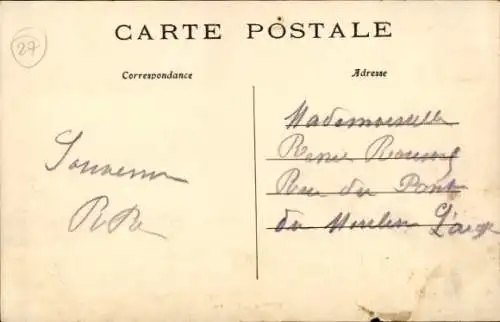 27
CARTE POSTALE
Correspondance
Adresse
Souvenir
Mademoiselle
Renée
Rue du Pont
du Moulin